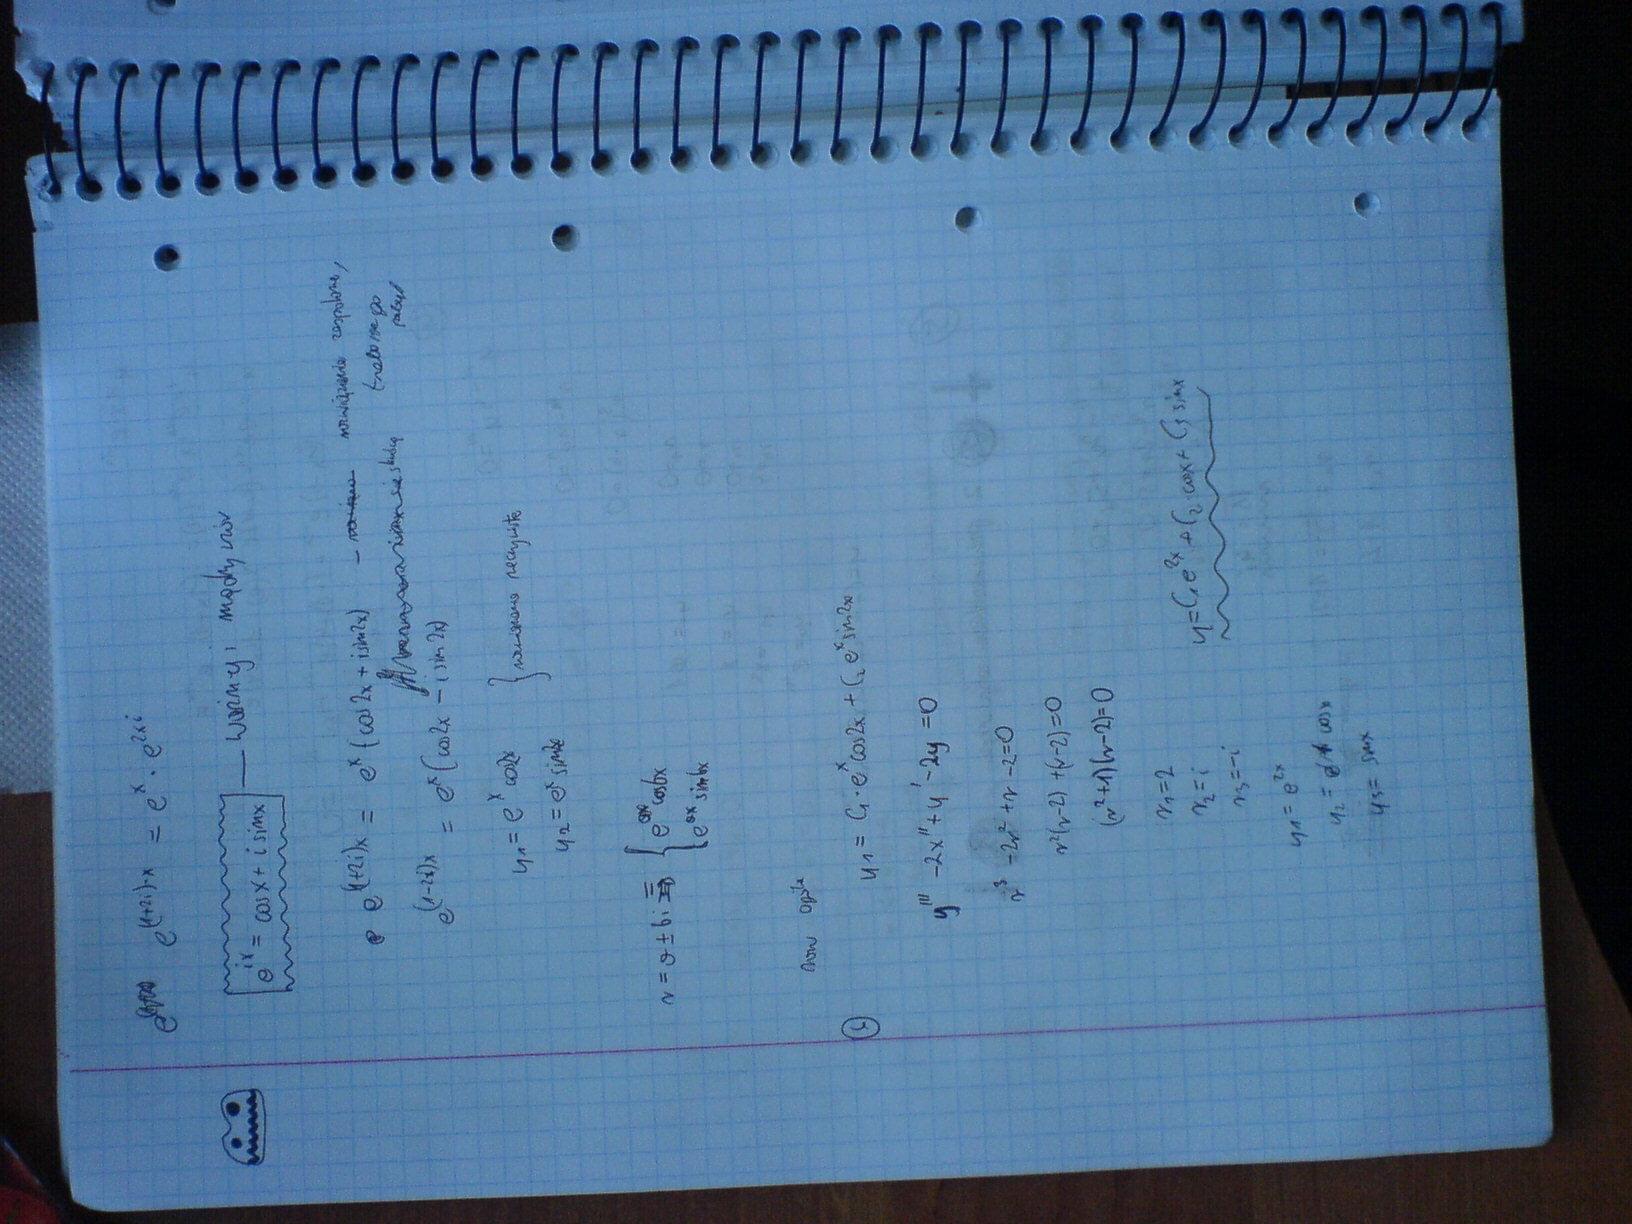 e^{(1+2i)·x} = e^x · e^{2xi}
e^{ix} = cosx + i sinx — ważny i mądry wzór
e^{(1+2i)x} = e^x (cos2x + i sin2x) — rozwiązanie zespolone,
e^{(1-2i)x} = e^x (cos2x - i sin2x)
y₁ = e^x cos2x
y₂ = e^x sin2x } rozwiązania rzeczywiste
r = a ± bi = { e^{ax} cosbx
e^{ax} sinbx
y₁ = C₁·e^x cos2x + C₂ e^x sin2x
y''' - 2x'' + y' - 2y = 0
r³ - 2r² + r - 2 = 0
r²(r-2) + (r-2) = 0
(r²+1)(r-2) = 0
r₁ = 2
r₂ = i
r₃ = -i
y = C₁e^{2x} + C₂·cosx + C₃ sinx
y₁ = e^{2x}
y₂ = cosx
y₃ = sinx